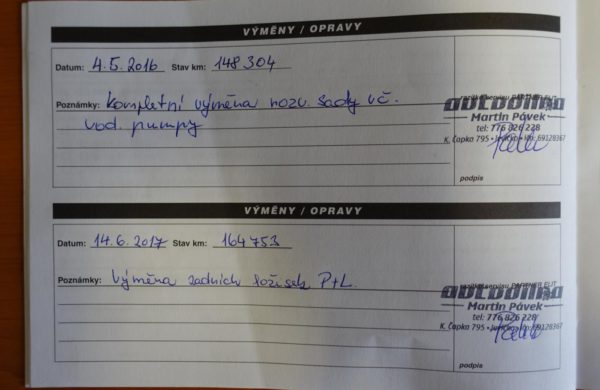 VÝMĚNY / OPRAVY
Datum: 4.5.2016 Stav km: 148 304
Poznámky: Kompletní výměna rozv. sady vč.
vod. pumpy
autodílna
Martin Pávek
tel: 776 826 228
K. Čapka 795
podpis
VÝMĚNY / OPRAVY
Datum: 14.6.2017 Stav km: 164 753
Poznámky: Výměna zadních ložisek P+L.
autodílna
Martin Pávek
tel: 776 826 228
K. Čapka 795
podpis